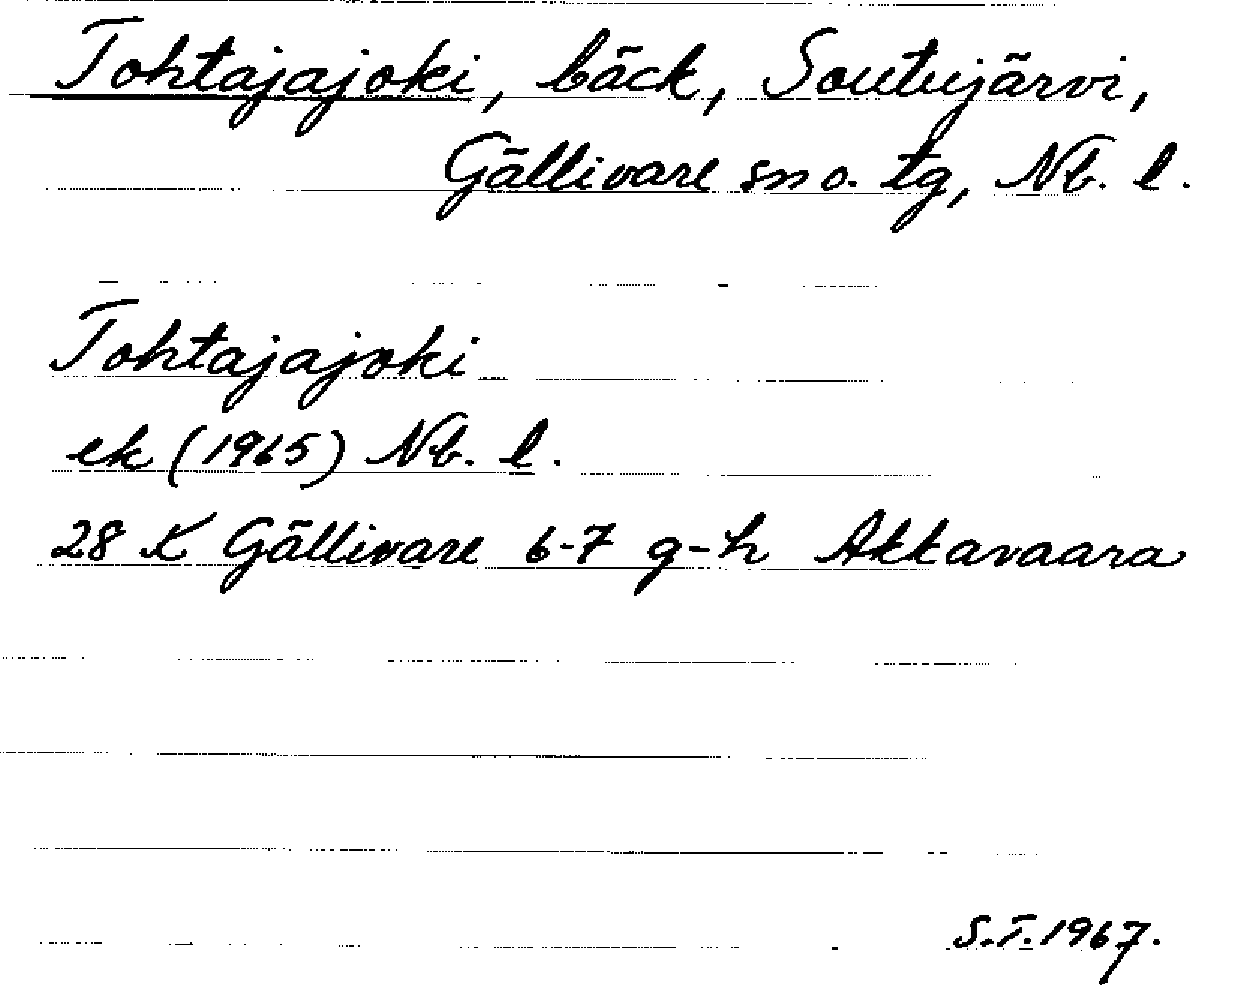 Tohtajajoki, bäck, Soutujärvi,
Gällivare sn o. tg, Nb. l.
Tohtajajoki
ek (1965) Nb. l.
28 K Gällivare 6-7 g-h Akkavaara
S.T. 1967.